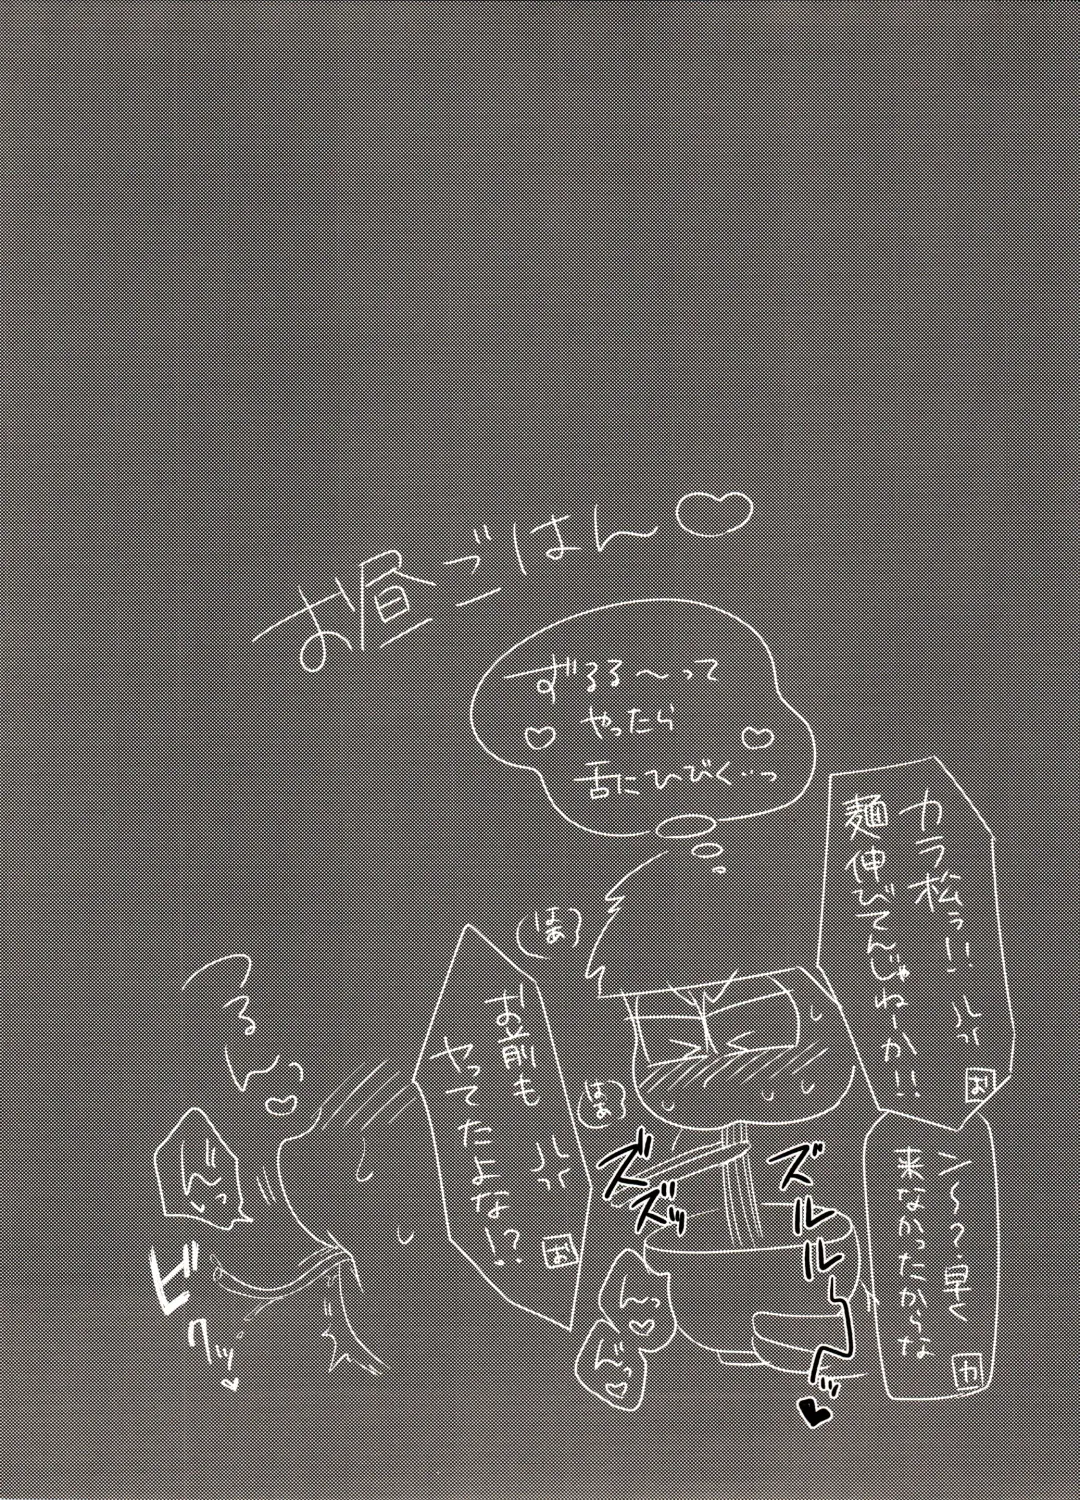 お昼ごはん♡
ずるる〜って
やったら
舌にひびく…っ
カラ松ぅ!!
麺伸びてんじゃねーか!!
お
ン〜?早く
来なかったからな
カ
お前も
やってたよな!?
お
はぁ
はぁ
ズズ
ズズッ
ズルルルーーッ
んっ♡
んっ♡
るんっ♡
んっ
ビクッ♡